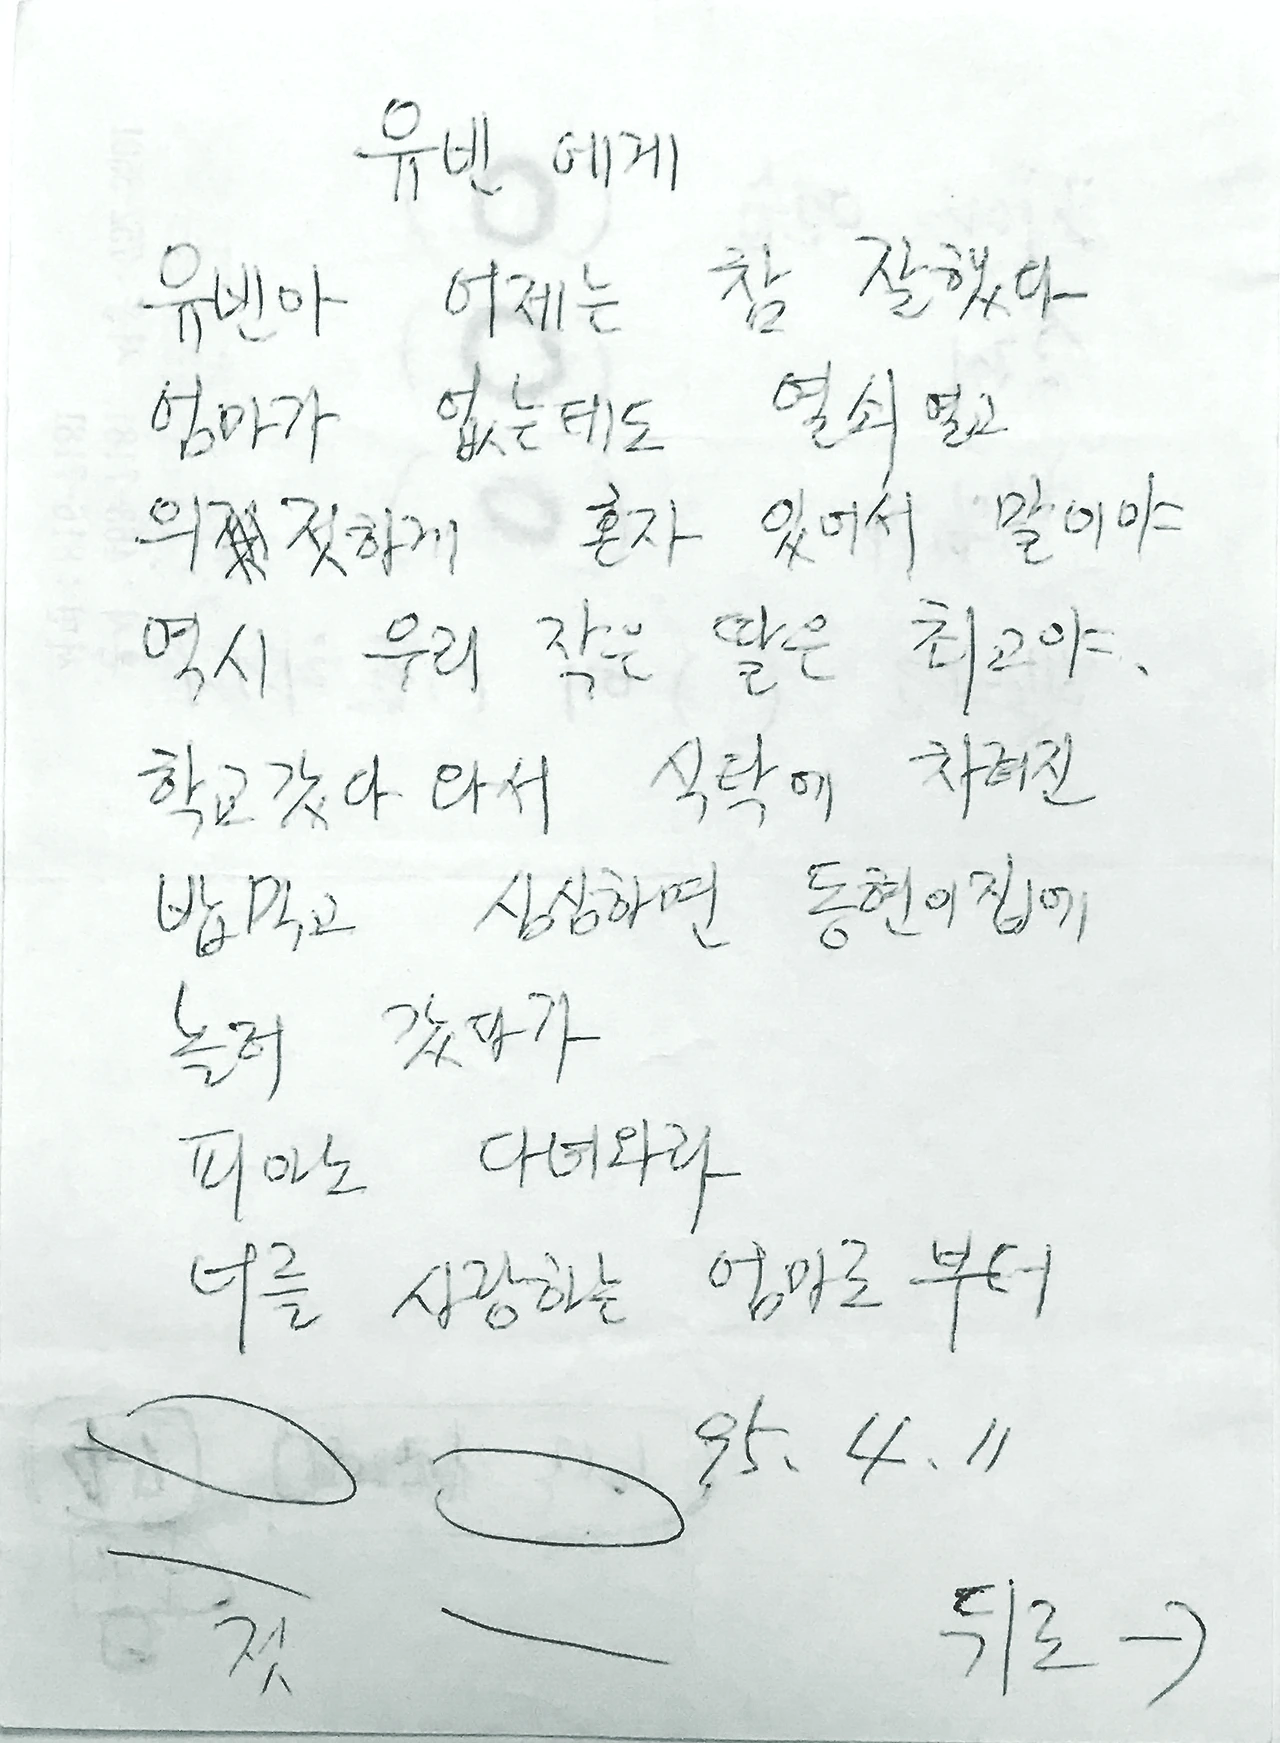 유빈 에게
유빈아 어제는 참 잘했다
엄마가 없는데도 열쇠 열고
의젓하게 혼자 있어서 말이야
역시 우리 작은 딸은 최고야.
학교갔다 와서 식탁에 차려진
밥먹고 심심하면 동현이집에
놀러 갔다가
피아노 다녀와라
너를 사랑하는 엄마로 부터
95. 4. 11
젓
뒤로 →